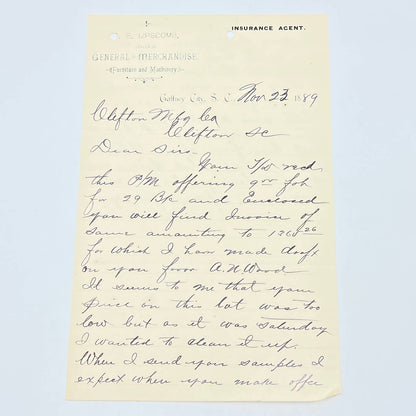 INSURANCE AGENT.
LIPSCOMB,
GENERAL MERCHANDISE
Furniture and Machinery
Gaffney City, S. C. Nov 23 1889
Clifton Mfg Co
Clifton SC
Dear Sirs
Your T/W recd
this P/M offering 9 fob
for 29 B/c and Enclosed
you will find Invoice of
same amounting to
for which I have made draft
on you favor A. N. Wood
It seems to me that your
price on this lot was too
low but as it was Saturday
I wanted to clean it up.
When I send you samples I
expect when you make offer